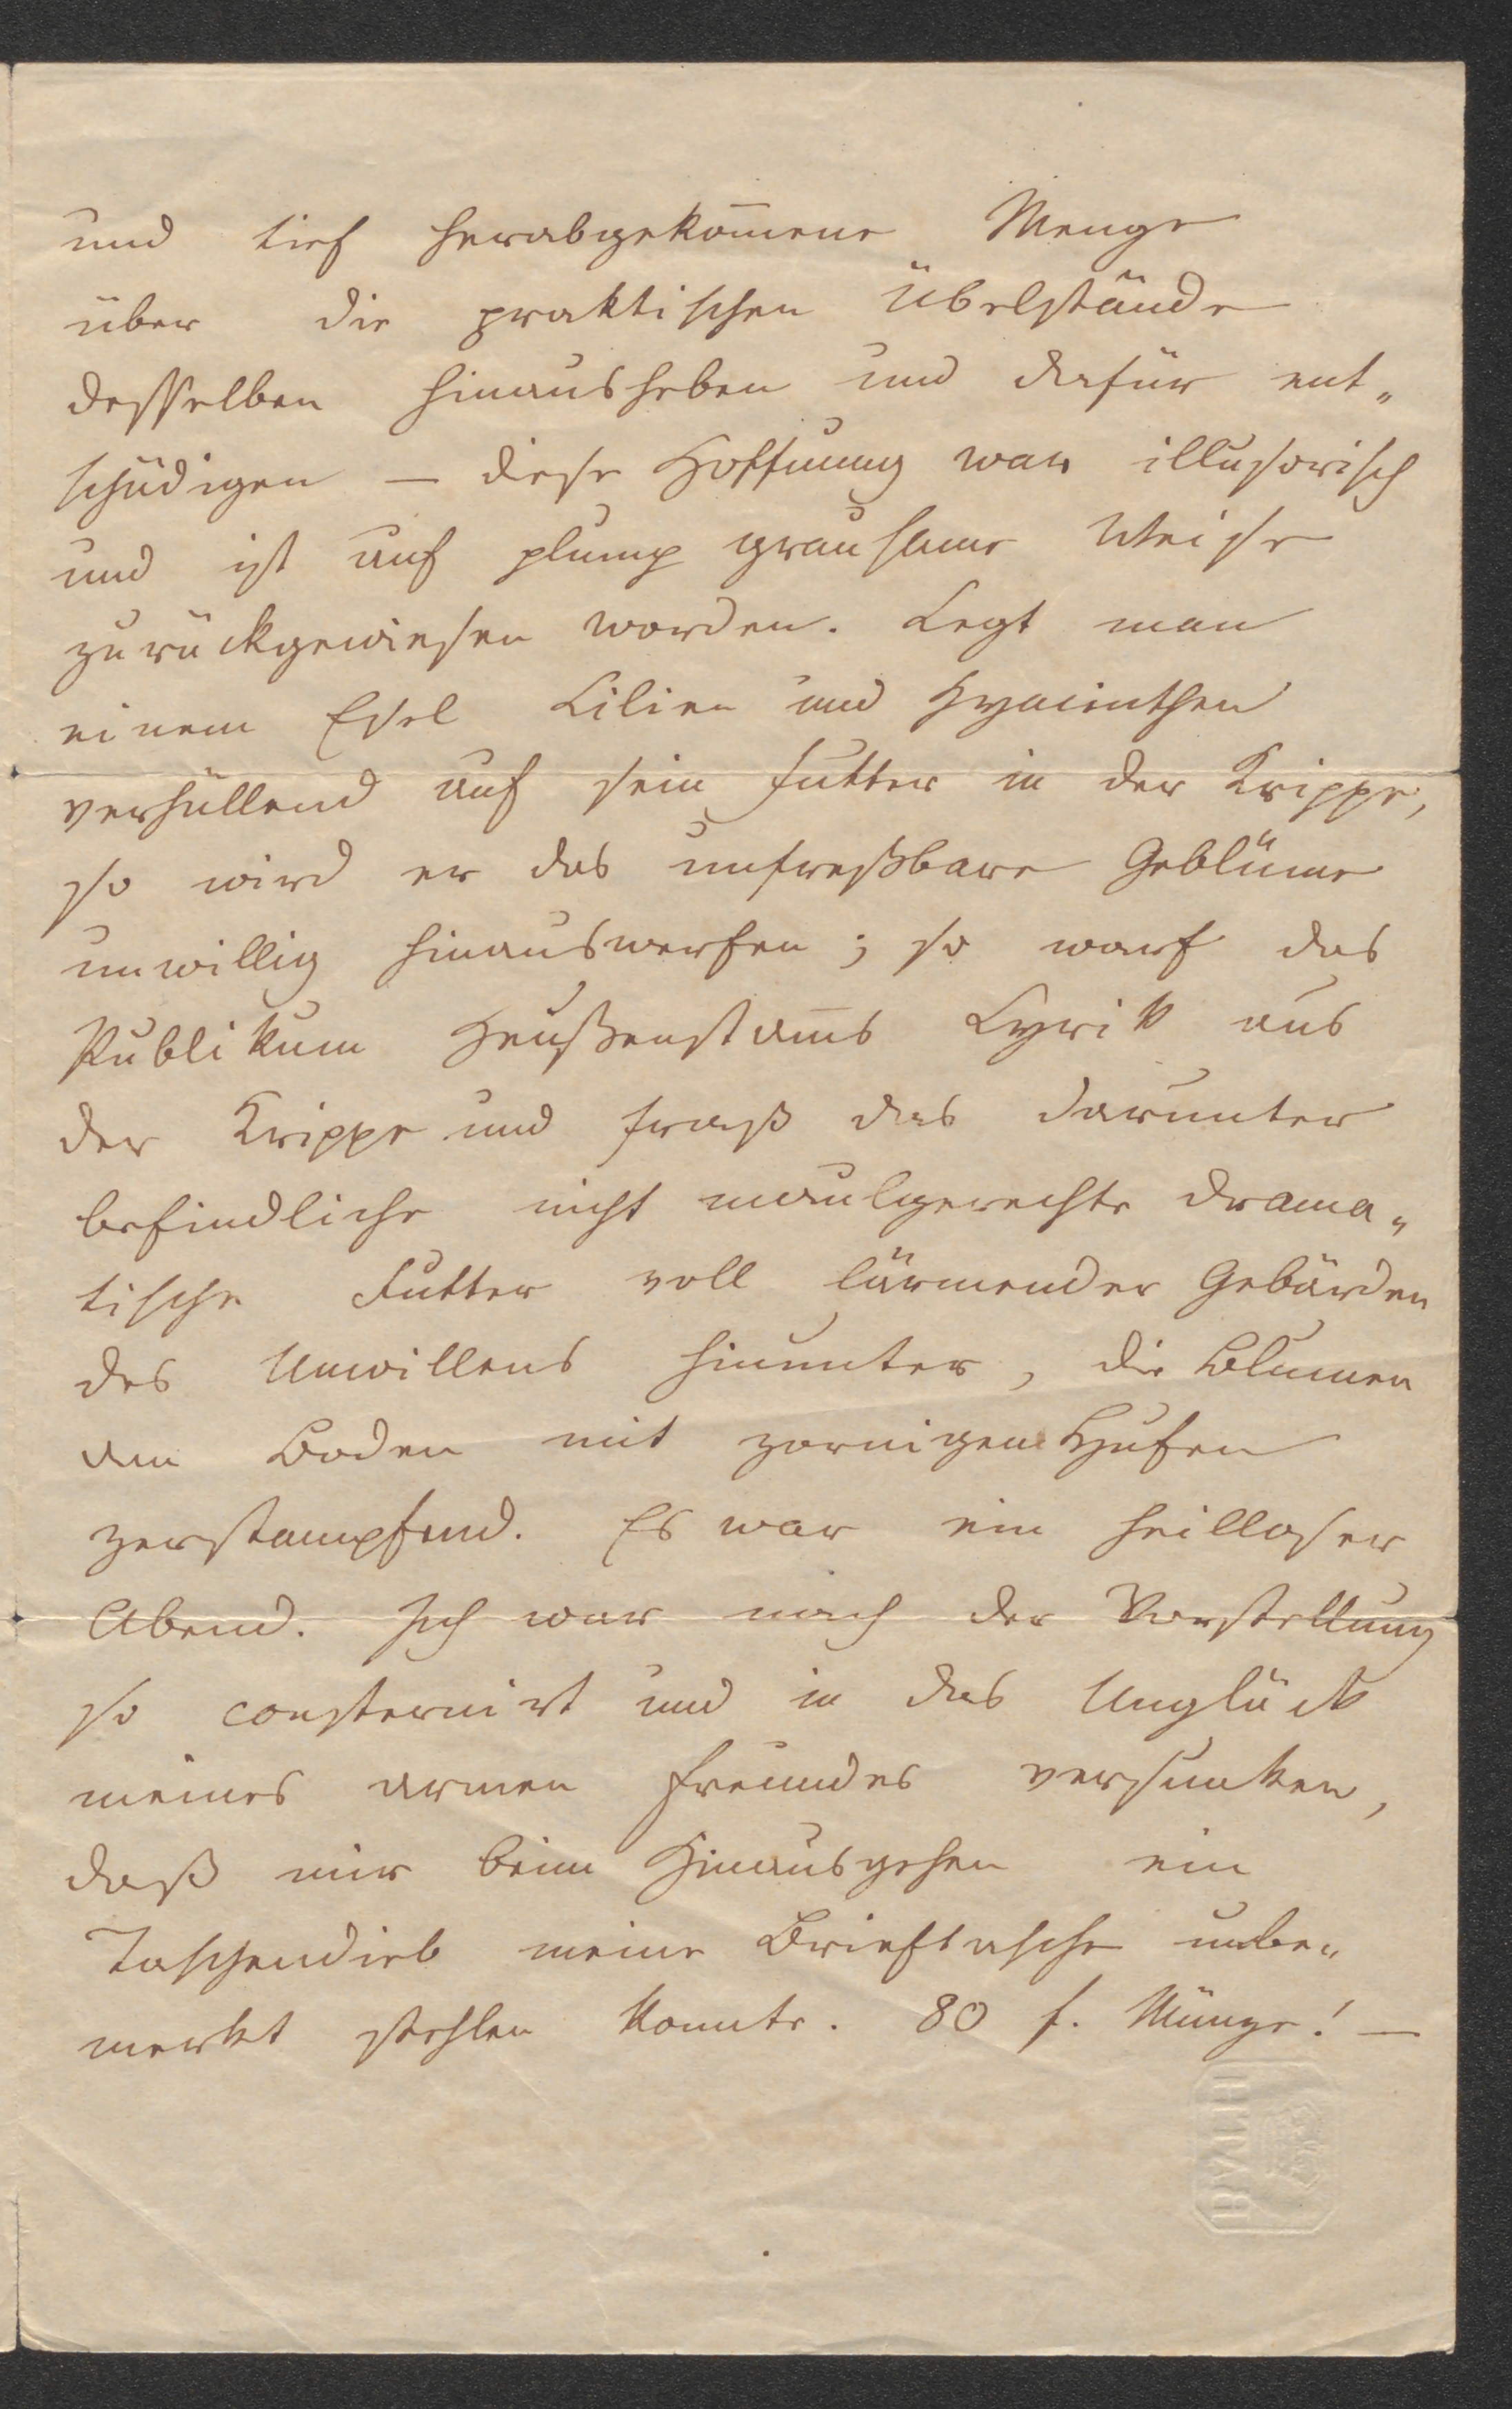 und tief herabgekom̅ene Menge
über die praktischen Übelstände
desselben hinausheben und dafür ent„
schädigen — diese Hoffnung war illusorisch
und ist auf plump grausame Weise
zurückgewiesen worden. Legt man
einem Esel Lilien und Hyacinthen
verhüllend auf sein Futter in der Krippe,
so wird er das unfreßbare Geblüme
unwillig hinauswerfen; so warf das
Publikum Heußenstam̅s Lyrik aus
der Krippe und fraß das darunter
befindliche nicht maulgerechte drama„
tische Futter voll lärmender Gebärden
des Unwillens hinunter, die Blumen
am Boden mit zornigen Hufen
zerstampfend. Es war ein heilloser
Abend. Ich war nach der Vorstellung
so consternirt und in das Unglück
meines armen Freundes versunken,
daß mir beim Hinausgehen ein
Taschendieb meine Brieftasche unbe„
merkt stehlen konnte. 80 f. Münze! —
BATH